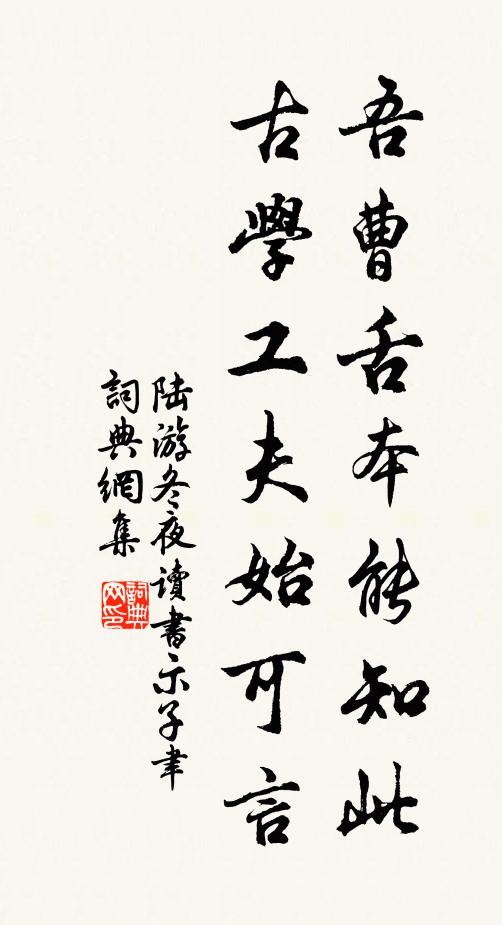 吾曹舌本能知此
古學工夫始可言
陆游冬夜讀書示子聿
詞典網集
詞典网印